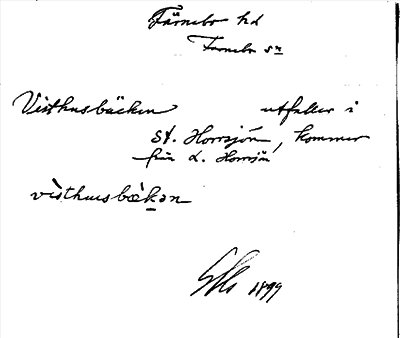 Färnebo hd
Färnebo sn
Visthusbäcken utfaller i
St. Horrsjön, kommer
från L. Horrsjön
visthusbäkan
1899